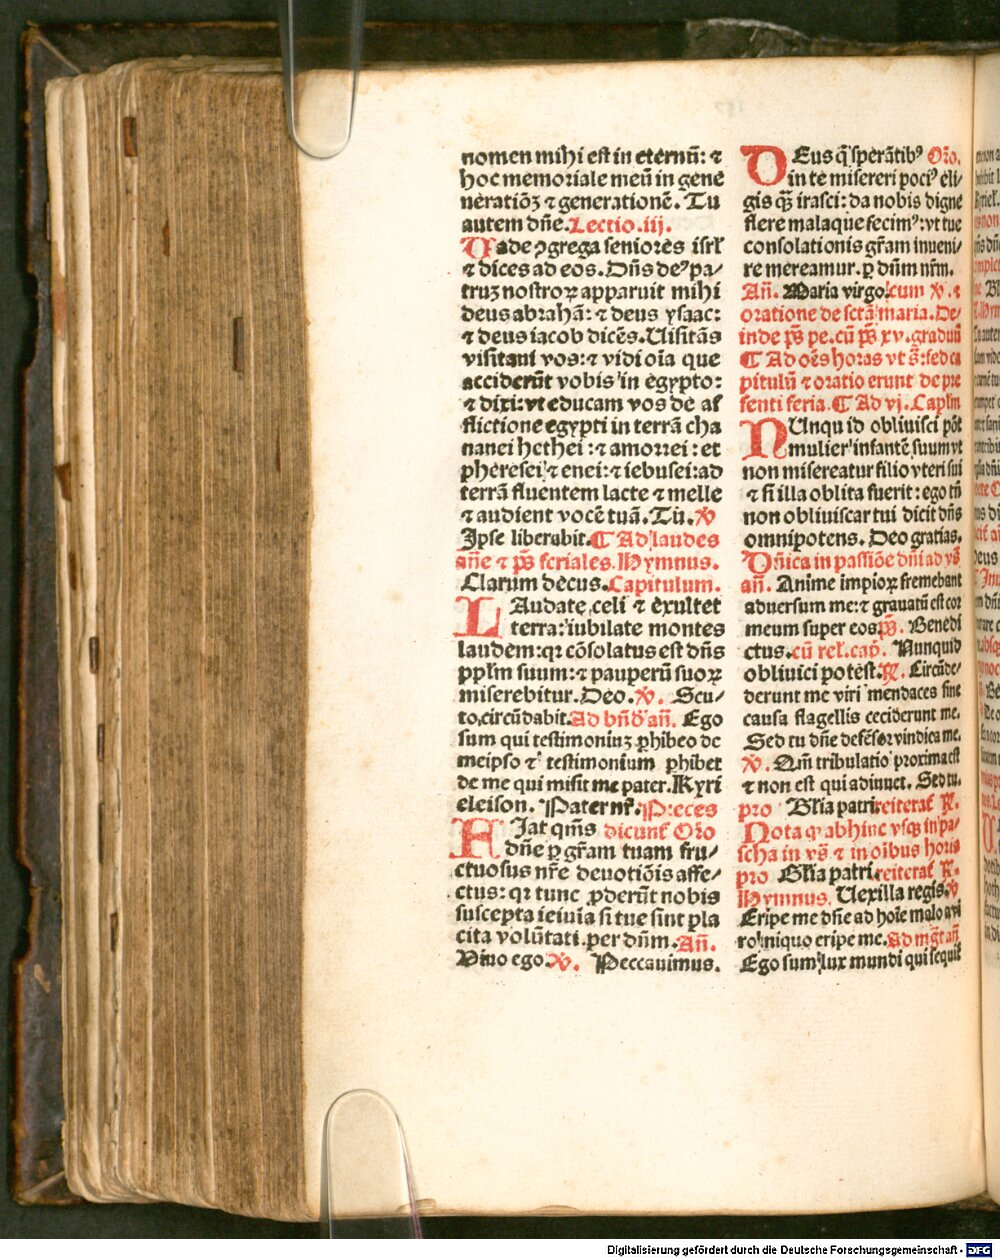 nomen mihi est in eternū: ⁊
hoc memoriale meū in gene
neratiōꝫ ⁊ generationē. Tu
autem dn̄e. Lectio .iij.
Uade ꝯgrega seniores isrl̄
⁊ dices ad eos. Dn̄s deꝰ pa-
truꝫ nostroꝝ apparuit mihi
deus abrahā: ⁊ deus ysaac:
⁊ deus iacob dicēs. Uisitās
visitaui vos: ⁊ vidi oīa que
acciderūt vobis in egypto:
⁊ dixi: vt educam vos de af
flictione egypti in terrā cha
nanei hethei: ⁊ amorrei: et
pheresei ⁊ euei: ⁊ iebusei: ad
terrā fluentem lacte ⁊ melle
⁊ audient vocē tuā. Tū. ꝟ
Ipse liberabit. ¶ Ad laudes
an̄e ⁊ p̄s feriales. Hymnus.
Clarum decus. Capitulum.
LAudate celi ⁊ exultet
terra: iubilate montes
laudem: qꝛ cōsolatus est dn̄s
pplm̄ suum: ⁊ pauperū suoꝝ
miserebitur. Deo. ꝟ. Scu-
to circūdabit. Ad bn̄d̄ an̄. Ego
sum qui testimoniuꝫ ꝑhibeo de
meipso ⁊ testimonium ꝑhibet
de me qui misit me pater. Kyri
eleison. Pater nr̄. Preces
FIat qm̄s dicunt̄ Oro
dn̄e ꝑ gr̄am tuam fru-
ctuosus nr̄e deuotiōis affe-
ctus: qꝛ tunc ꝓderūt nobis
suscepta ieiuia si tue sint pla
cita volūtati. per dn̄m. An̄.
Viuo ego. ꝟ. Peccauimus.
DEus q̄ sperātibꝰ Oro.
in te misereri pociꝰ eli-
gis qꝫ irasci: da nobis digne
flere mala que fecimꝰ: vt tue
consolationis gr̄am inueni-
re mereamur. ꝑ dn̄m nr̄m.
An̄. Maria virgo. cum ꝟ. ⁊
oratione de sctā maria. De-
inde p̄s pe. cū p̄s xv. graduū
¶ Ad oēs horas vt s̄: sed ca
pitulū ⁊ oratio erunt de pre
senti feria. ¶ Ad vj. Caplm̄
NUnquid obliuisci pōt
mulier infantē suum vt
non misereatur filio vteri sui
⁊ si illa oblita fuerit: ego tn̄
non obliuiscar tui dicit dn̄s
omnipotens. Deo gratias.
Dn̄ica in passiōe dn̄i ad vs̄
an̄. Anime impioꝝ fremebant
aduersum me: ⁊ grauatū est cor
meum super eos. p̄s. Benedi
ctus. cū rel̄. cap̄. Nunquid
obliuici potest. ꝶ. Circūde-
derunt me viri mendaces sine
causa flagellis ceciderunt me.
Sed tu dn̄e defēsor vindica me.
ꝟ. Qm̄ tribulatio proxima est
⁊ non est qui adiuuet. Sed tu.
pro Gl̄ia patri reiterat̄ ꝶ.
Nota ꝙ abhinc vsqꝫ in pa-
scha in vs̄ ⁊ in oībus horis
pro Gl̄ia patri. reiterat̄ ꝶ.
Hymnus. Uexilla regis. ꝟ
Eripe me dn̄e ab hoīe malo a vi
ro iniquo eripe me. Ad mg̅t an̄
Ego sum lux mundi qui sequit̄
Digitalisierung gefördert durch die Deutsche Forschungsgemeinschaft - DFG